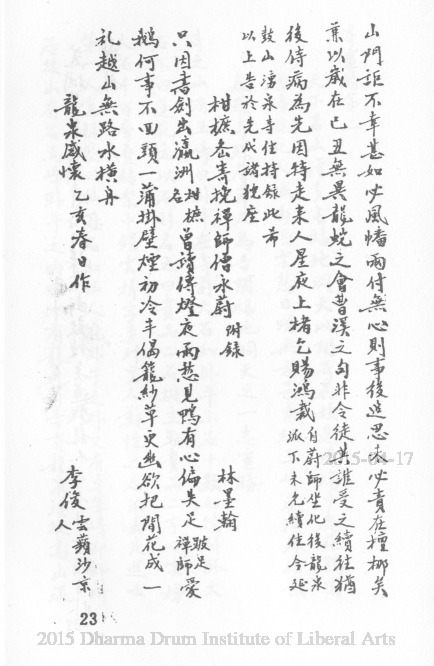 山門詎不幸甚如必風幡兩付無心則事後追思未必責在檀梛矣
葉以歲在己丑無異龍蛇之會曹溪之勾非令徒其誰受之續往猶
後侍病為先因特走來人星夜上楮乞賜鴻裁自蔚師坐化後龍泉
派下未允續住今延
鼓山湧泉寺住持錄此希
以上告於先成諸猊座
柑樜岙壽挽禪師僧永蔚 附錄 林墨翰
只因書劍出瀛洲柑樜名曾讀傳燈夜雨愁見鴨有心偏失足跛足禪師愛
鵝何事不回頭一蒲掛壁煙初冷半偈籠紗草更幽欲把閒花成一
礼越山無路水橫舟
龍泉感懷 乙亥春日作 李俊 雲蘋沙京人
23
2015-04-17
2015 Dharma Drum Institute of Liberal Arts